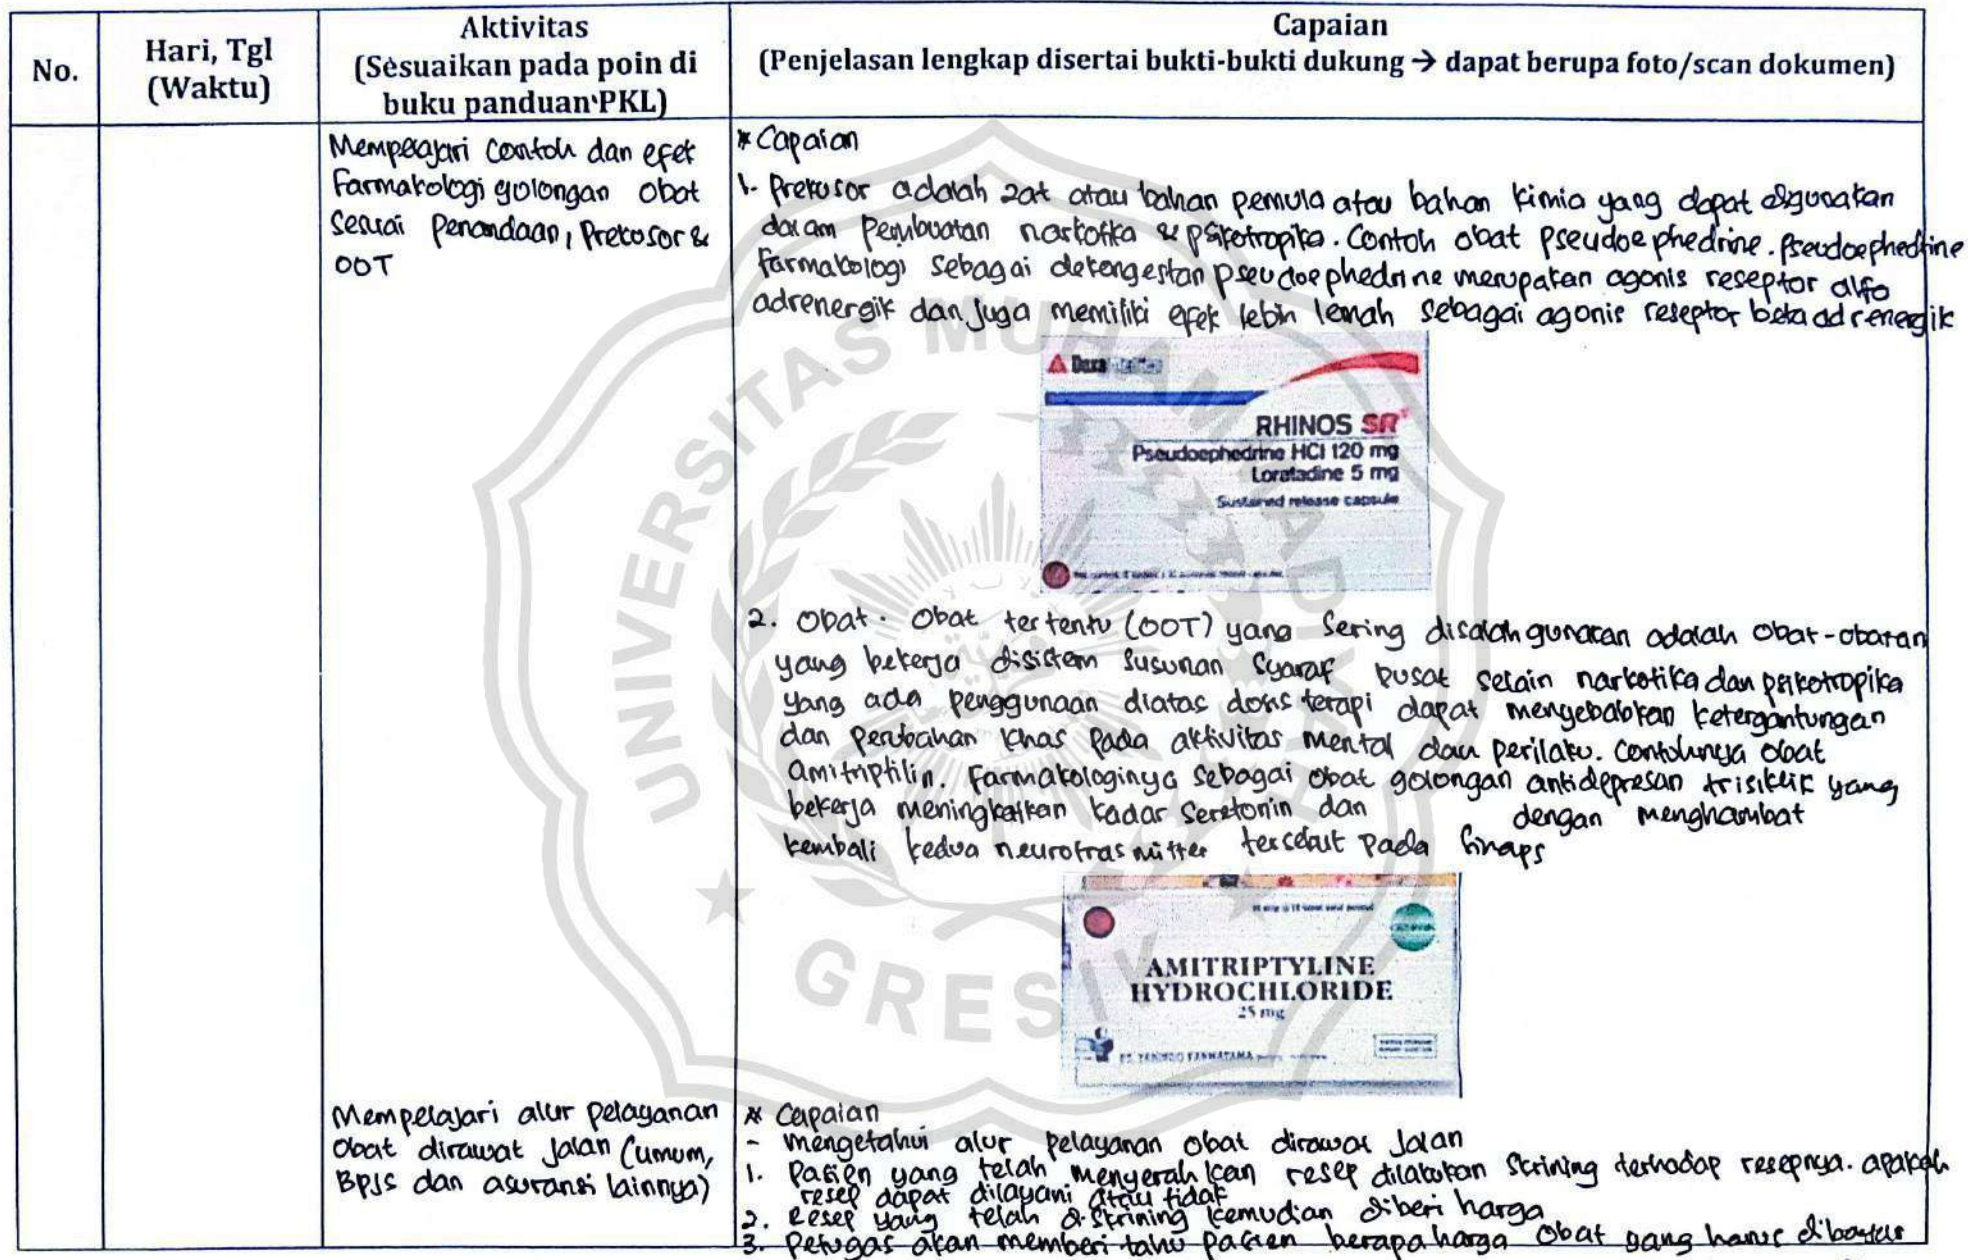 No.
Hari, Tgl
(Waktu)
Aktivitas
(Sesuaikan pada poin di
buku panduan PKL)
Capaian
(Penjelasan lengkap disertai bukti-bukti dukung → dapat berupa foto/scan dokumen)
Mempelajari contoh dan efek
Farmakologi golongan obat
sesuai Penandaan, Prekosor &
OOT
* Capaian
1. Prekosor adalah zat atau bahan pemula atau bahan kimia yang dapat digunakan
dalam Pembuatan narkotika & psikotropika. Contoh obat pseudoephedrine. Pseudoephedrine
farmakologi sebagai dekongestan pseudoephedrine merupakan agonis reseptor alfa
adrenergik dan juga memiliki efek lebih lemah sebagai agonis reseptor beta adrenergik
Dexa
RHINOS SR
Pseudoephedrine HCl 120 mg
Loratadine 5 mg
Sustained release capsule
2. Obat-Obat tertentu (OOT) yang sering disalahgunakan adalah obat-obatan
yang bekerja disistem susunan syaraf pusat selain narkotika dan psikotropika
yang ada penggunaan diatas dosis terapi dapat menyebabkan ketergantungan
dan perubahan khas pada aktivitas mental dan perilaku. contohnya obat
amitriptilin. Farmakologinya sebagai obat golongan antidepresan trisiklik yang
bekerja meningkatkan kadar seretonin dan dengan menghambat
kembali kedua neurotrasmitter tersebut pada sinaps
AMITRIPTYLINE
HYDROCHLORIDE
25 mg
Mempelajari alur pelayanan
Obat dirawat jalan (umum,
BPJS dan asuransi lainnya)
* Capaian
- mengetahui alur pelayanan obat dirawat Jalan
1. Pasien yang telah menyerahkan resep dilakukan skrining terhadap resepnya. apakah
resep dapat dilayani atau tidak
2. Resep yang telah di skrining kemudian diberi harga
3. Petugas akan memberi tahu pasien berapa harga obat yang harus dibayar
UNIVERSITAS MUHAMMADIYAH
GRESIK